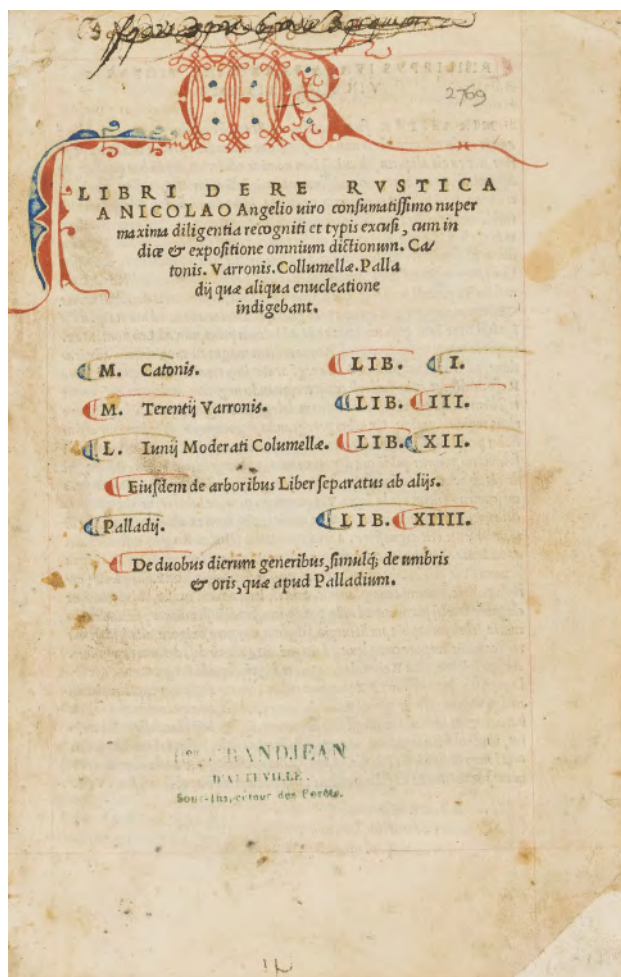 2769
LIBRI DE RE RVSTICA
A NICOLAO Angelio uiro consumatissimo nuper
maxima diligentia recogniti et typis excusi, cum in
dice & expositione omnium dictionum. Ca/
tonis. Varronis. Collumellæ. Palla
dij quæ aliqua enucleatione
indigebant.
M. Catonis. LIB. I.
M. Terentij Varronis. LIB. III.
L. Iunij Moderati Columellæ. LIB. XII.
Eiusdem de arboribus Liber separatus ab alijs.
Palladij. LIB. XIIII.
De duobus dierum generibus, simulq; de umbris
& oris, quæ apud Palladium.
GRANDJEAN
D'ALTEVILLE.
Sous-Inspecteur des Forêts.